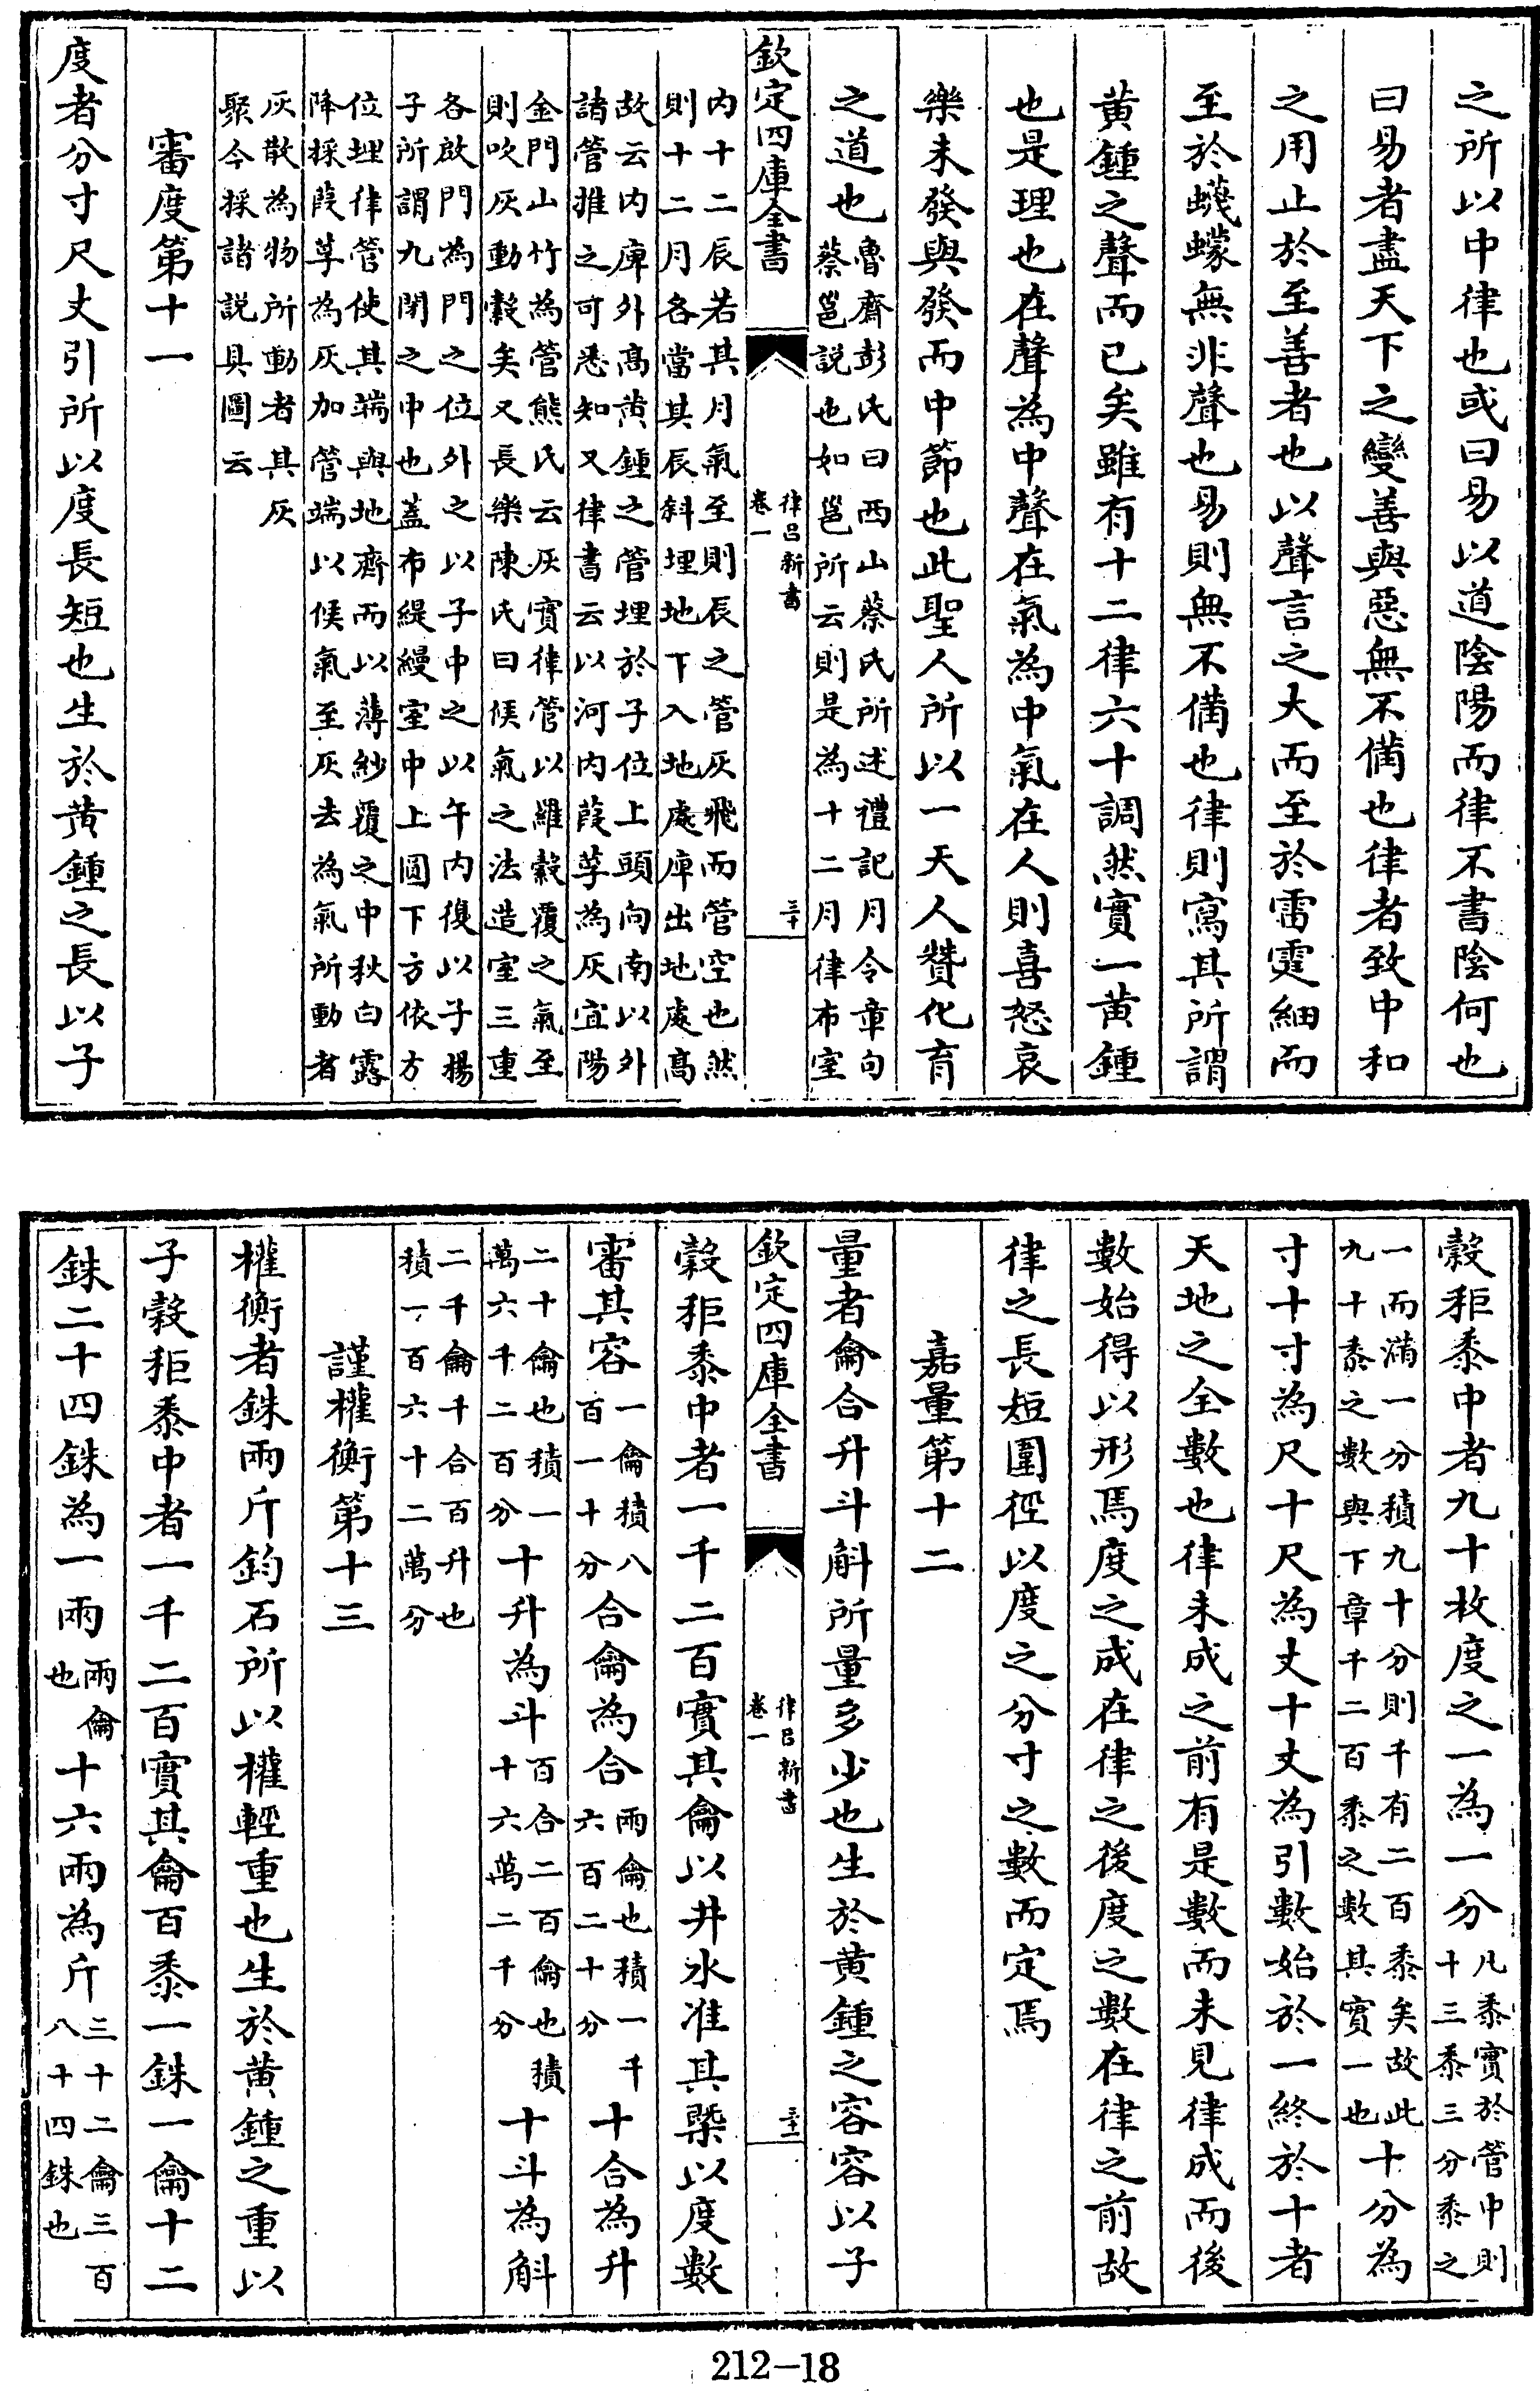 之所以中律也或曰易以道陰陽而律不書陰何也
曰易者盡天下之變善與惡無不備也律者致中和
之用止於至善者也以聲言之大而至於雷霆細而
至於蠛蠓無非聲也易則無不備也律則寫其所謂
黄鍾之聲而已矣雖有十二律六十調然實一黄鍾
也是理也在聲為中聲在氣為中氣在人則喜怒哀
樂未發與發而中節也此聖人所以一天人贊化育
之道也魯齋彭氏曰西山蔡氏所述禮記月令章句
蔡邕説也如邕所云則是為十二月律布室
欽定四庫全書
律吕新書
卷一
三十
内十二辰若其月氣至則辰之管灰飛而管空也然
則十二月各當其辰斜埋地下入地處庳出地處高
故云内庳外高黄鍾之管埋於子位上頭向南以外
諸管推之可悉知又律書云以河内葭莩為灰宜陽
金門山竹為管熊氏云灰實律管以羅縠覆之氣至
則吹灰動縠矣又長樂陳氏曰候氣之法造室三重
各啟門為門之位外之以子中之以午内復以子揚
子所謂九閉之中也葢布緹縵室中上圓下方依方
位埋律管使其端與地齊而以薄紗覆之中秋白露
降採葭莩為灰加管端以候氣至灰去為氣所動者
灰散為物所動者其灰
聚今採諸説具圖云
審度第十一
度者分寸尺丈引所以度長短也生於黄鍾之長以子
穀秬黍中者九十枚度之一為一分凡黍實於管中則
十三黍三分黍之
一而滿一分積九十分則千有二百黍矣故此
九十黍之數與下章千二百黍之數其實一也十分為
寸十寸為尺十尺為丈十丈為引數始於一終於十者
天地之全數也律未成之前有是數而未見律成而後
數始得以形焉度之成在律之後度之數在律之前故
律之長短圍徑以度之分寸之數而定焉
嘉量第十二
量者龠合升斗斛所量多少也生於黄鍾之容容以子
欽定四庫全書
律吕新書
卷一
三十一
穀秬黍中者一千二百實其龠以井水准其槩以度數
審其容一龠積八
百一十分合龠為合兩龠也積一千
六百二十分十合為升
二十龠也積一
萬六千二百分十升為斗百合二百龠也積
十六萬二千分十斗為斛
二千龠千合百升也
積一百六十二萬分
謹權衡第十三
權衡者銖兩斤鈞石所以權輕重也生於黄鍾之重以
子穀秬黍中者一千二百實其龠百黍一銖一龠十二
銖二十四銖為一兩兩龠
也十六兩為斤三十二龠三百
八十四銖也
212-18